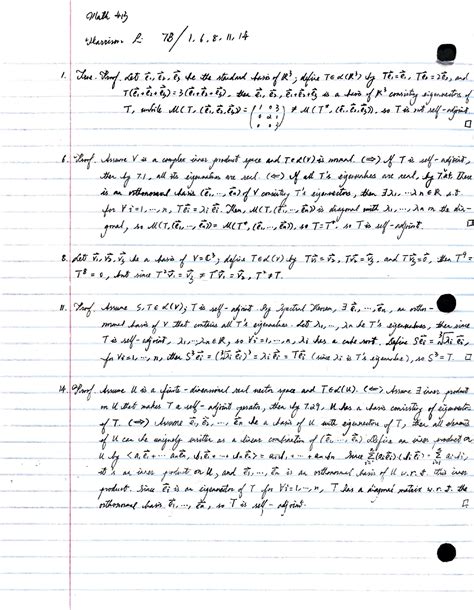 Math 413
Harrison P. 7B/1, 6, 8, 11, 14
1. True. Proof. Let e⃗₁, e⃗₂, e⃗₃ be the standard basis of ℝ³; define T∈L(ℝ³) by Te⃗₁=e⃗₁, Te⃗₂=2e⃗₂, and
T(e⃗₁+e⃗₂+e⃗₃)=3(e⃗₁+e⃗₂+e⃗₃), then e⃗₁, e⃗₂, e⃗₁+e⃗₂+e⃗₃ is a basis of ℝ³ consisting eigenvectors of
T, while M(T,(e⃗₁,e⃗₂,e⃗₃)) = ≠ M(T*,(e⃗₁,e⃗₂,e⃗₃)), so T is not self-adjoint. □
6. Proof. Assume V is a complex inner product space and T∈L(V) is normal. (⇒) If T is self-adjoint,
then by 7.1, all its eigenvalues are real. (⇐) If all T's eigenvalues are real, by 7.24 there
is an orthonormal basis (e⃗₁,…,e⃗n) of V consisting T's eigenvectors, then ∃ λ₁,…,λn∈ℝ s.t.
for ∀i=1,…,n, Te⃗i=λie⃗i. Then, M(T,(e⃗₁,…,e⃗n)) is diagonal with λ₁,…,λn on the dia-
gonal, so M(T,(e⃗₁,…,e⃗n)) = M(T*,(e⃗₁,…,e⃗n)), so T=T*, so T is self-adjoint. □
8. Let v⃗₁, v⃗₂, v⃗₃ be a basis of V=ℂ³; define T∈L(V) by Tv⃗₁=v⃗₂, Tv⃗₂=v⃗₃, and Tv⃗₃=0⃗, then T⁹=
T⁸=0, but since T²v⃗₁=v⃗₃≠Tv⃗₁=v⃗₂, T²≠T.
11. Proof. Assume S,T∈L(V); T is self-adjoint. By Spectral Theorem, ∃ e⃗₁,…,e⃗n, an ortho-
normal basis of V that contains all T's eigenvalues. Let λ₁,…,λn be T's eigenvalues, then since
T is self-adjoint, λ₁,…,λn∈ℝ, so ∀i=1,…,n, λi has a cube root. Define Se⃗i=∛λi e⃗i,
for ∀i=1,…,n, then S³e⃗i=(∛λi)³e⃗i=λie⃗i=Te⃗i (since λi is T's eigenvalue), so S³=T. □
14. Proof. Assume U is a finite-dimensional real vector space and T∈L(U). (⇐) Assume ∃ inner product
on U that makes T a self-adjoint operator, then by 7.29, U has a basis consisting of eigenvectors
of T. (⇒) Assume e⃗₁, e⃗₂,…, e⃗n be a basis of U with eigenvectors of T, then all elements
of U can be uniquely written as a linear combination of (e⃗₁,…,e⃗n). Define an inner product on
U by <a₁e⃗₁+…+ane⃗n, b₁e⃗₁+…+bne⃗n> = a₁b₁+…+anbn. Since
it's an inner product on U, and e⃗₁,…,e⃗n is an orthonormal basis of U w.r.t. this inner
product. Since e⃗i is an eigenvector of T for ∀i=1,…,n, T has a diagonal matrix w.r.t. the
orthonormal basis e⃗₁,…,e⃗n, so T is self-adjoint. □